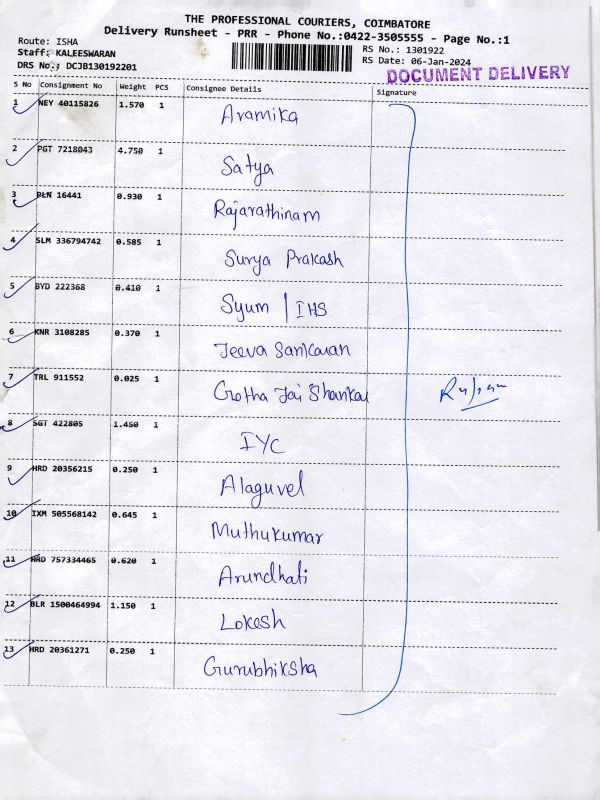 THE PROFESSIONAL COURIERS, COIMBATORE
Delivery Runsheet - PRR - Phone No.:0422-3505555 - Page No.:1
Route: ISHA
Staff: KALEESWARAN
DRS No.: DCJB130192201
RS No.: 1301922
RS Date: 06-Jan-2024
DOCUMENT DELIVERY
S No Consignment No Weight PCS Consignee Details Signature
1 NEY 40115826 1.570 1 Aramika
2 PGT 7218043 4.750 1 Satya
3 BLN 16441 0.930 1 Rajarathinam
4 SLM 336794742 0.585 1 Surya Prakash
5 BYD 222368 0.410 1 Syum | IHS
6 KNR 3108285 0.370 1 Jeeva Sankaran
7 TRL 911552 0.025 1 Gotha Jai Shankar
8 SGT 422805 1.450 1 IYC
9 HRD 20356215 0.250 1 Alaguvel
10 IXM 505568142 0.645 1 Muthukumar
11 HRD 757334465 0.620 1 Arundhati
12 BLR 1500464994 1.150 1 Lokesh
13 HRD 20361271 0.250 1 Gurubhiksha